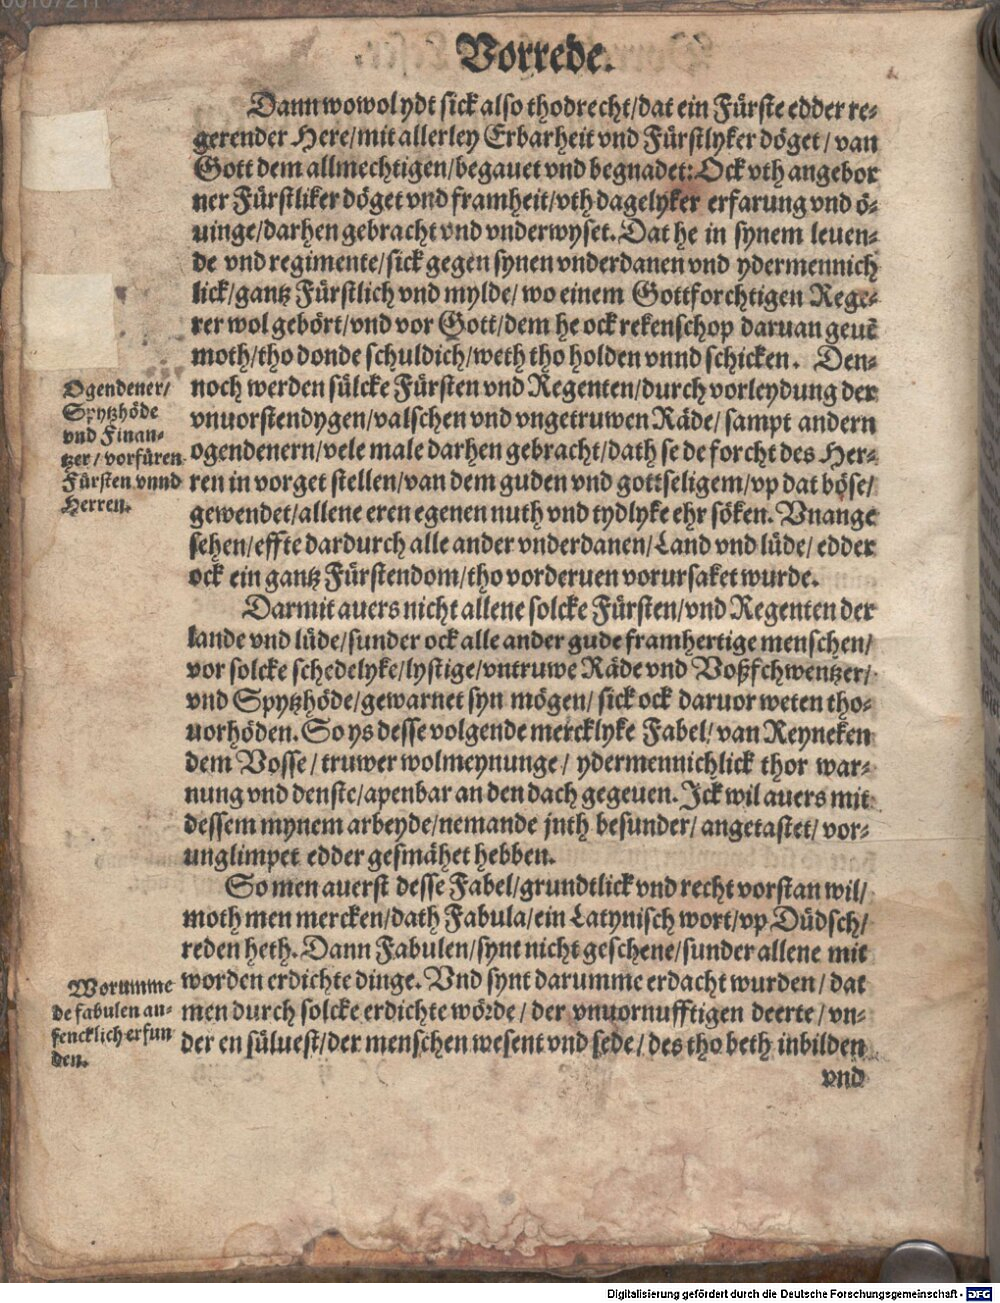 Vorrede.
Dann wowol ydt sick also thodrecht/dat ein Fürste edder re-
gerender Here/mit allerley Erbarheit vnd Fürstlyker döget/van
Gott dem allmechtigen/begauet vnd begnadet: Ock vth angebor
ner Fürstliker döget vnd framheit/vth dagelyker erfarung vnd ö-
uinge/darhen gebracht vnd vnderwyset. Dat he in synem leuen-
de vnd regimente/sick gegen synen vnderdanen vnd ydermennich
lick/gantz Fürstlich vnd mylde/wo einem Gottforchtigen Rege-
rer wol gebört/vnd vor Gott/dem he ock rekenschop daruan geuē
moth/tho donde schuldich/weth tho holden vnnd schicken. Den-
noch werden sülcke Fürsten vnd Regenten/durch vorleydung der
vnuorstendygen/valschen vnd vngetruwen Räde/sampt andern
ogendenern/vele male darhen gebracht/dath se de forcht des Her-
ren in vorget stellen/van dem guden vnd gottseligem/vp dat böse/
gewendet/allene eren egenen nuth vnd tydlyke ehr söken. Vnange
sehen/effte dardurch alle ander vnderdanen/Land vnd lüde/edder
ock ein gantz Fürstendom/tho vorderuen vorursaket wurde.
Ogendener/
Spytzhöde
vnd Finan-
tzer/vorfüren
Fürsten vnnd
Herren.
Darmit auers nicht allene solcke Fürsten/vnd Regenten der
lande vnd lüde/sunder ock alle ander gude framhertige menschen/
vor solcke schedelyke/lystige/vntruwe Räde vnd Voßschwentzer/
vnd Spytzhöde/gewarnet syn mögen/sick ock daruor weten tho-
uorhöden. So ys desse volgende mercklyke Fabel/van Reyneken
dem Vosse/truwer wolmeynunge/ydermennichlick thor war-
nung vnd denste/apenbar an den dach gegeuen. Ick wil auers mit
dessem mynem arbeyde/nemande jnth besunder/angetastet/vor-
unglimpet edder gesmähet hebben.
So men auerst desse Fabel/grundtlick vnd recht vorstan wil/
moth men mercken/dath Fabula/ein Latynisch wort/vp Düdsch/
reden heth. Dann Fabulen/synt nicht geschene/sunder allene mit
worden erdichte dinge. Vnd synt darumme erdacht wurden/dat
men durch solcke erdichte wörde/der vnuornufftigen deerte/vn-
der en süluest/der menschen wesent vnd sede/des tho beth inbilden
Worumme
de fabulen an-
fencklich erfun
den.
vnd
Digitalisierung gefördert durch die Deutsche Forschungsgemeinschaft - DFG